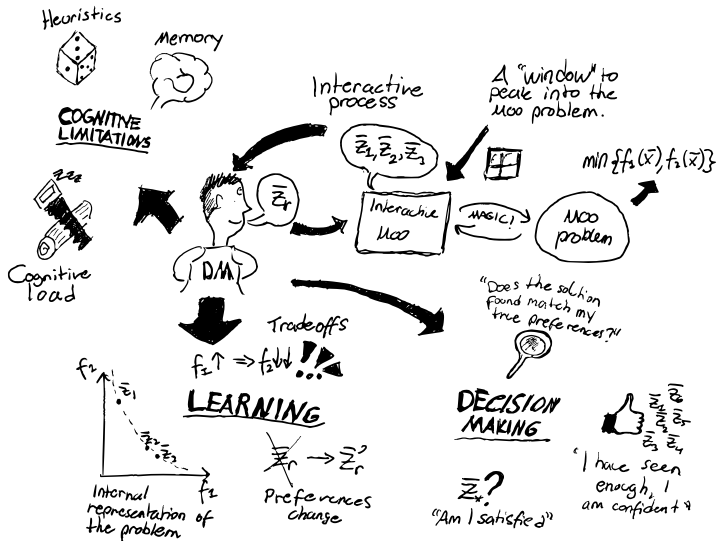 Heuristics
Memory
COGNITIVE
LIMITATIONS
Cognitive
load
Interactive
process
z̄₁, z̄₂, z̄₃
z̄r
DM
Interactive
MOO
MAGIC!
MOO
problem
A "window" to
peak into the
MOO problem.
min{f₁(x̄), f₂(x̄)}
Tradeoffs
f₁↑ ⇒ f₂↓↓ !!!
LEARNING
f₂
z̄1
z̄2
z̄3
f₁
Internal
representation of
the problem
z̄r → z̄r'
Preferences
change
"Does the solution
found match my
true preferences?"
DECISION
MAKING
z̄*?
"Am I satisfied"
z̄₁ z̄₆
z̄₂ z̄₅
z̄₃ z̄₄
"I have seen
enough, I
am confident"